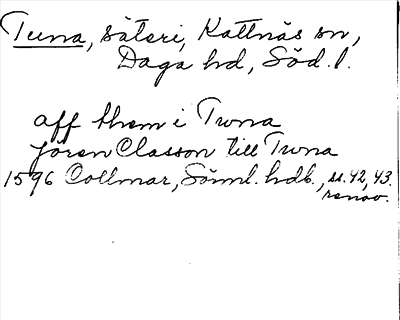 Tuna, säteri, Kattnäs sn,
Daga hd, Söd. l.
aff them i Twna
Jören Classon till Twna
1596 Collmar, Sörml. hdl., ss. 42, 43.
renov.